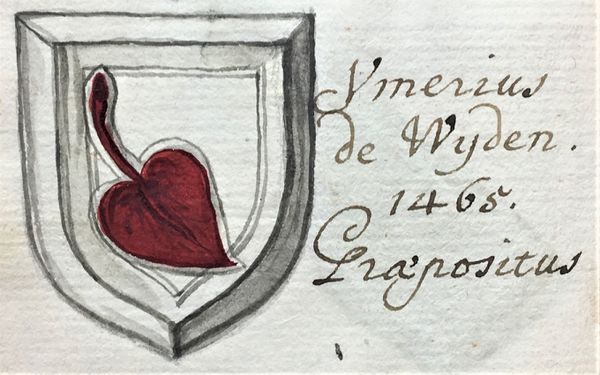 Ymerius
de Wyden.
1465.
Præpositus